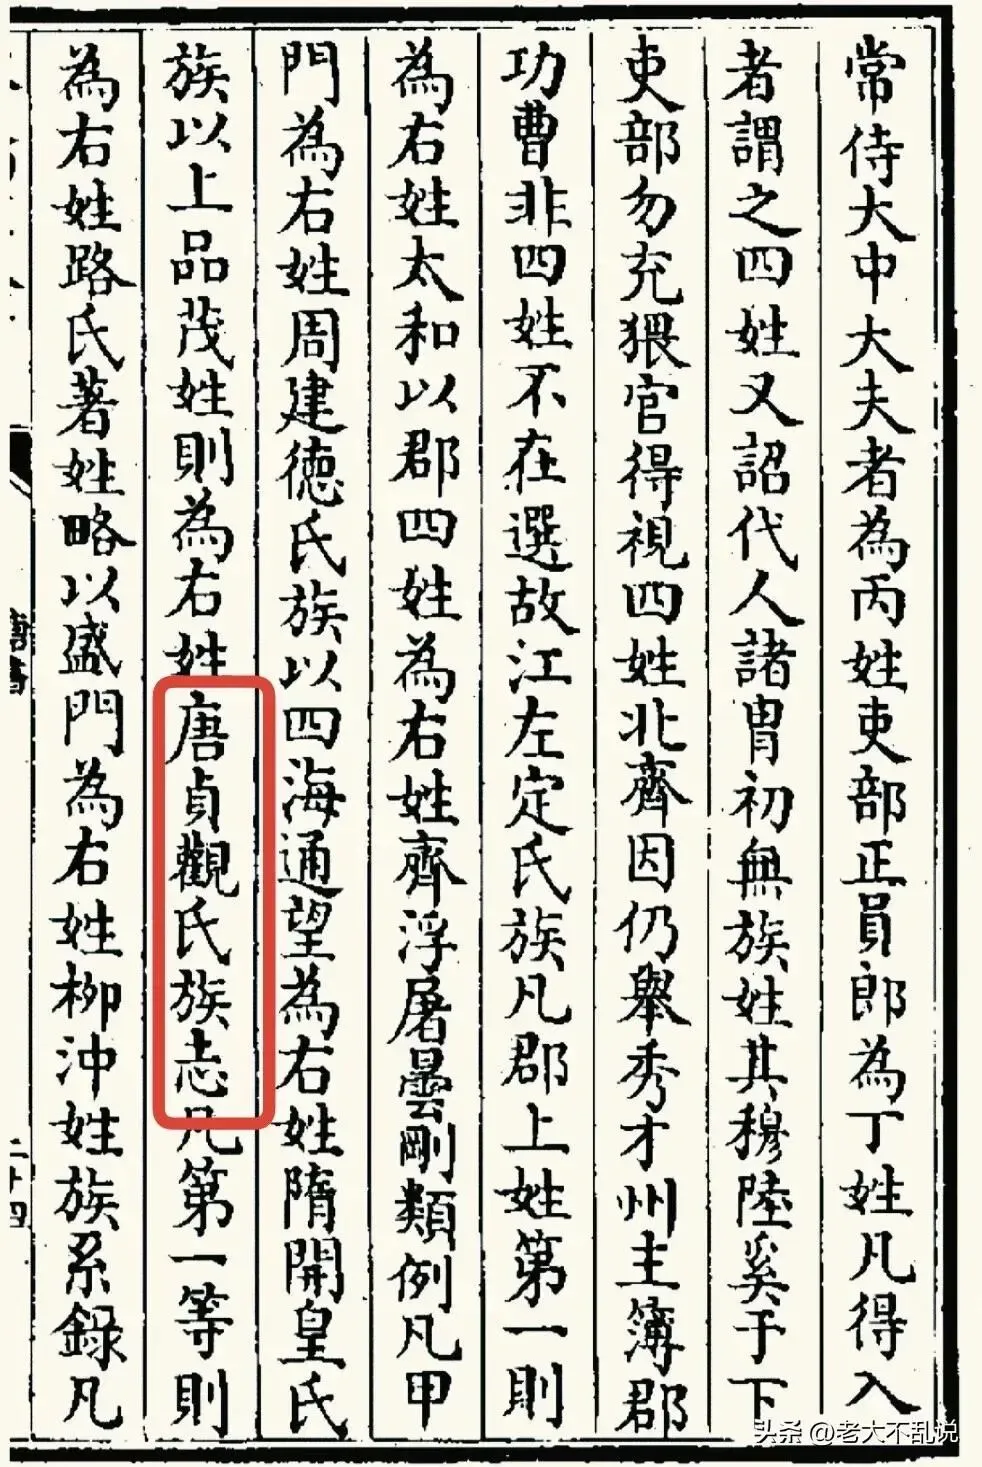 常侍大中大夫者為丙姓吏部正員郎為丁姓凡得入
者謂之四姓又詔代人諸胄初無族姓其穆陸奚于下
吏部勿充猥官得視四姓北齊因仍舉秀才州主簿郡
功曹非四姓不在選故江左定氏族凡郡上姓第一則
為右姓太和以郡四姓為右姓齊浮屠曇剛類例凡甲
門為右姓周建德氏族以四海通望為右姓隋開皇氏
族以上品茂姓則為右姓唐貞觀氏族志凡第一等則
為右姓路氏著姓略以盛門為右姓柳沖姓族系錄凡
唐書
二十四
头条 @老大不乱说